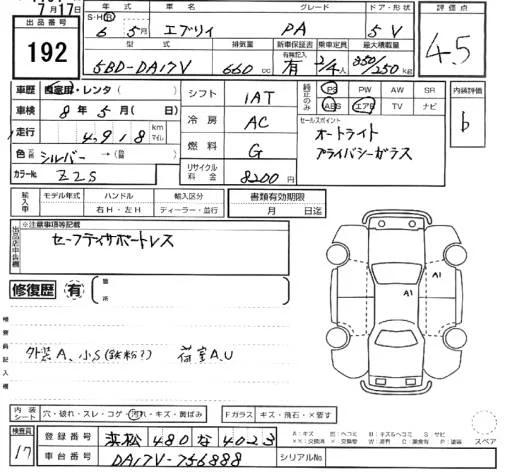 7月17日
出品番号
192
年式 車名 グレード ドア・形状
S・H・R 6 5月 エブリィ PA 5 V
型式 排気量 新車保証書 乗車定員 最大積載量
有無記入
5BD-DA17V 660cc 有 2/4人 350/250kg
評価点
4.5
車歴 自家用・レンタ( )
車検 8年5月( 日)
走行 4,918 km マイル
色 シルバー→( )
カラーNo. Z2S
シフト 1AT
冷房 AC
燃料 G
リサイクル料金 8200円
純正のみ PS PW AW SR
ABS エアB TV ナビ
セールスポイント
オートライト
プライバシーガラス
内装評価
b
輸入車 モデル年式 ハンドル 輸入区分 書類有効期限
右H・左H ディーラー・並行 月 日迄
出品店申告欄 ※注意事項等記載
セーフティサポートレス
修復歴 有 箇所
A1
A1
検査員記入欄
外装A、小S(鉄粉?) 荷室A,U
内装シート 穴・破れ・スレ・コゲ・汚れ・キズ・黄ばみ Fガラス キズ・飛石・X要す
スペア
検査員
17
登録番号 浜松 480 な 4023
車台番号 DA17V-756888 シリアルNo.